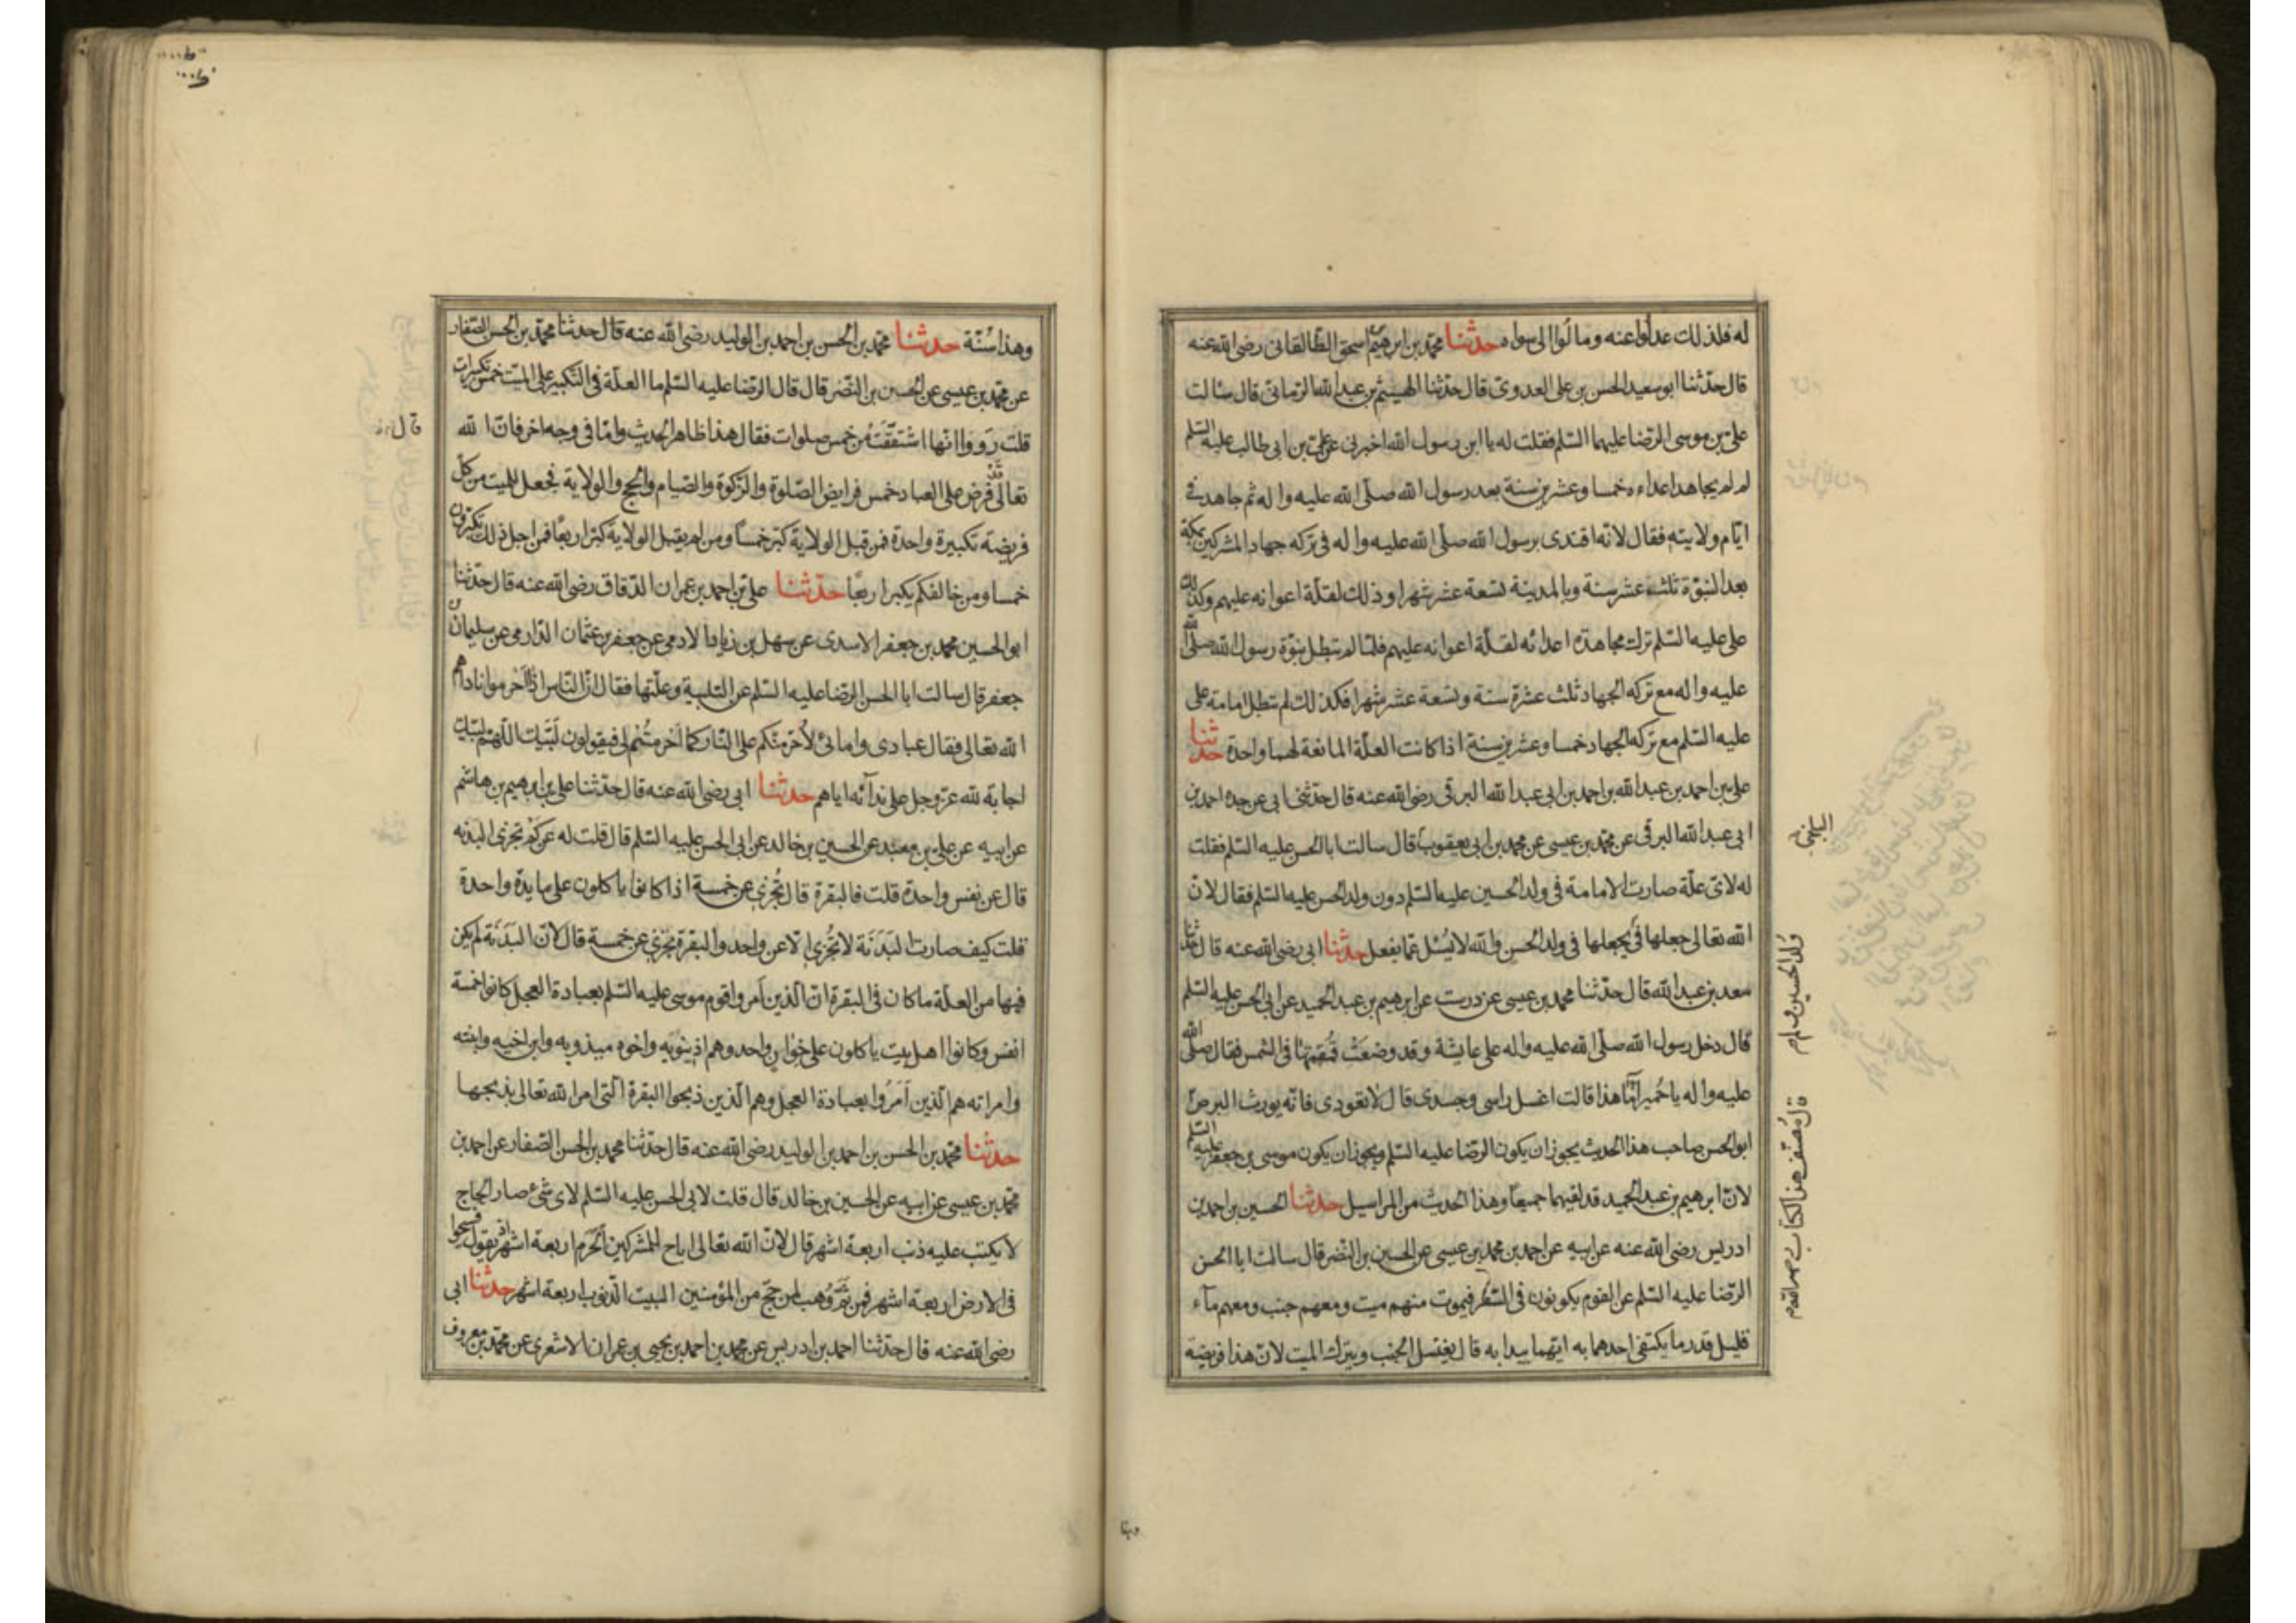 له فلذلك عدلوا عنه ومالوا الى سواه حدثنا محمد بن ابرهيم بن اسحق الطالقانى رضى الله عنه
قال حدثنا ابو سعيد الحسن بن على العدوى قال حدثنا الهيثم بن عبد الله الرمانى قال سالت
على بن موسى الرضا عليهما السلم فقلت له يا ابن رسول الله اخبرنى عن على بن ابى طالب عليه السلم
لم لم يجاهد اعداءه خمسا وعشرين سنة بعد رسول الله صلى الله عليه واله ثم جاهد فى
ايام ولايته فقال لانه اقتدى برسول الله صلى الله عليه واله فى تركه جهاد المشركين بمكة
بعد النبوة ثلث عشر سنة وبالمدينة تسعة عشر شهرا وذلك لقلة اعوانه عليهم وكذلك
على عليه السلم ترك مجاهدة اعدائه لقلة اعوانه عليهم فلما لم تبطل نبوة رسول الله صلى الله
عليه واله مع تركه الجهاد ثلث عشرة سنة وتسعة عشر شهرا فكذلك لم تبطل امامة على
عليه السلم مع تركه الجهاد خمسا وعشرين سنة اذا كانت العلة المانعة لهما واحدة حدثنا
على بن احمد بن عبد الله بن احمد بن ابى عبد الله البرقى رضى الله عنه قال حدثنى ابى عن جده احمد بن
ابى عبد الله البرقى عن محمد بن عيسى عن محمد بن ابى يعقوب قال سالت ابا الحسن عليه السلم فقلت
البلخى
له لاى علة صارت الامامة فى ولد الحسين عليه السلم دون ولد الحسن عليه السلم فقال لان
الله تعالى جعلها فى يجعلها فى ولد الحسن والله لا يسئل عما يفعل حدثنا ابى رضى الله عنه قال حدثنا
ولد الحسين ولم
سعد بن عبد الله قال حدثنا محمد بن عيسى عن درست عن ابرهيم بن عبد الحميد عن ابى الحسن عليه السلم
قال دخل رسول الله صلى الله عليه واله على عايشة وقد وضعت قمقمتها فى الشمس فقال صلى الله
عليه واله يا حميراء ما هذا قالت اغسل راسى وجسدى قال لا تعودى فانه يورث البرص
قال مصنف هذا الكتاب
ابو الحسن صاحب هذا الحديث يجوز ان يكون الرضا عليه السلم ويجوز ان يكون موسى بن جعفر عليه السلم
لان ابرهيم بن عبد الحميد قد لقيهما جميعا وهذا الحديث من المراسيل حدثنا الحسين بن احمد بن
ادريس رضى الله عنه عن ابيه عن احمد بن محمد بن عيسى عن الحسين بن النضر قال سالت ابا الحسن
الرضا عليه السلم عن القوم يكونون فى السفر فيموت منهم ميت ومعهم جنب ومعهم ماء
قليل قدر ما يكتفى احدهما به ايهما يبدا به قال يغتسل الجنب ويترك الميت لان هذا فريضة
وهذا سنة حدثنا محمد بن الحسن بن احمد بن الوليد رضى الله عنه قال حدثنا محمد بن الحسن الصفار
عن محمد بن عيسى عن الحسين بن النضر قال قال الرضا عليه السلم ما العلة فى التكبير على الميت خمس تكبيرات
قلت رووا انها اشتقت من خمس صلوات فقال هذا ظاهر الحديث واما فى وجه اخر فان الله
قال
تعالى قد فرض على العباد خمس فرايض الصلوة والزكوة والصيام والحج والولاية فجعل للميت من كل
فريضة تكبيرة واحدة فمن قبل الولاية كبر خمسا ومن لم يقبل الولاية كبر اربعا فمن اجل ذلك تكبرون
خمسا ومن خالفكم يكبر اربعا حدثنا على بن احمد بن عمران الدقاق رضى الله عنه قال حدثنا
ابو الحسين محمد بن جعفر الاسدى عن سهل بن زياد الادمى عن جعفر بن عثمان الدارمى عن سليمان بن
جعفر قال سالت ابا الحسن الرضا عليه السلم عن التلبية وعلتها فقال ان الناس اذا احرموا ناداهم
الله تعالى فقال عبادى وامائى لاحرمنكم على النار كما احرمتم لى فيقولون لبيك اللهم لبيك
اجابة لله عز وجل على ندائه اياهم حدثنا ابى رضى الله عنه قال حدثنا على بن ابرهيم بن هاشم
عن ابيه عن على بن معبد عن الحسين بن خالد عن ابى الحسن عليه السلم قال قلت له عن كم تجزى البدنه
قال عن نفس واحدة قلت فالبقرة قال تجزى عن خمسة اذا كانوا ياكلون على مايدة واحدة
قلت كيف صارت البدنة لا تجزى الا عن واحد والبقرة تجزى عن خمسة قال لان البدنة لم يكن
فيها من العلة ما كان فى البقرة ان الذين امروا قوم موسى عليه السلم بعبادة العجل كانوا خمسة
انفس وكانوا اهل بيت ياكلون على خوان واحد وهم اذينويه واخوه ميذويه وابن اخيه وابنته
وامراته هم الذين امروا بعبادة العجل وهم الذين ذبحوا البقرة التى امر الله تعالى بذبحها
حدثنا محمد بن الحسن بن احمد بن الوليد رضى الله عنه قال حدثنا محمد بن الحسن الصفار عن احمد بن
محمد بن عيسى عن ابيه عن الحسين بن خالد قال قلت لابى الحسن عليه السلم لاى شئ صار الحاج
لا يكتب عليه ذنب اربعة اشهر قال لان الله تعالى اباح للمشركين الحرم اربعة اشهر اذ يقول فسيحوا
فى الارض اربعة اشهر فمن ثم وهب لمن حج من المؤمنين البيت الذنوب اربعة اشهر حدثنا ابى
رضى الله عنه قال حدثنا احمد بن ادريس عن محمد بن احمد بن يحيى بن عمران الاشعرى عن محمد بن معروف